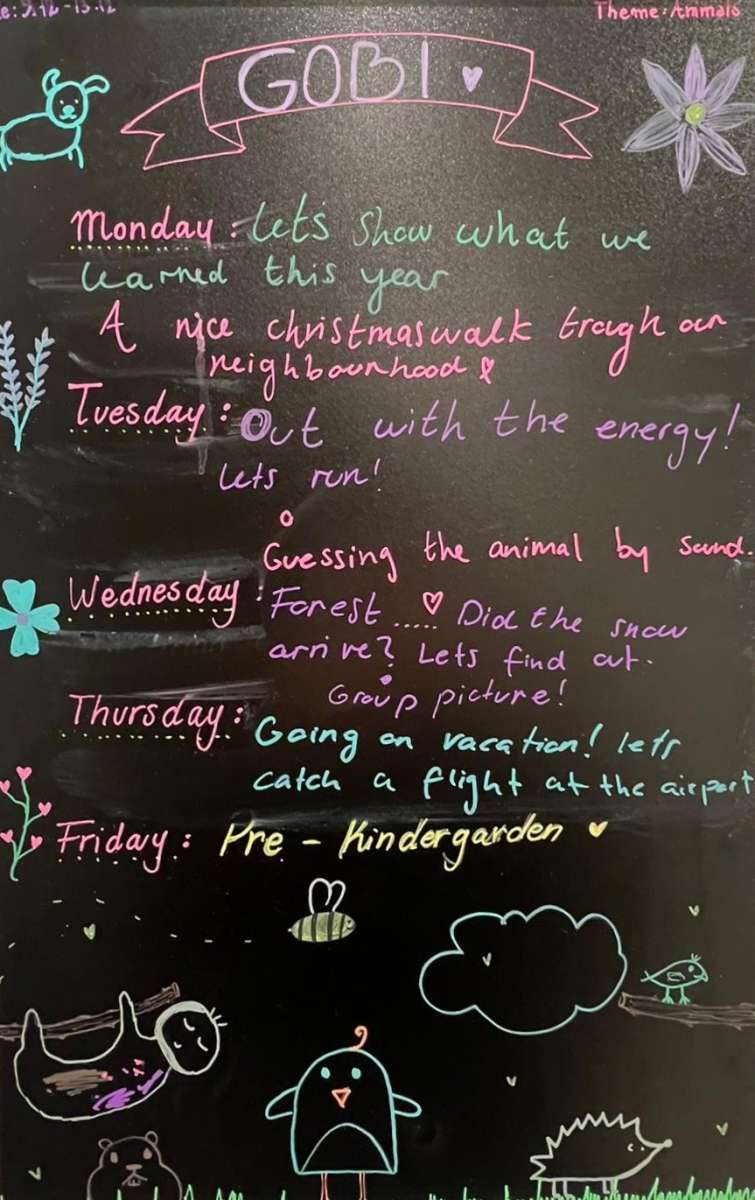 e: 9.12 - 13.12
Theme: Animals
GOBI
Monday: Let's show what we
learned this year
A nice christmaswalk trough our
neighbourhood
Tuesday: Out with the energy!
Lets run!
Guessing the animal by sound.
Wednesday: Forest..... Did the snow
arrive? Lets find out.
Group picture!
Thursday: Going on vacation! let's
catch a flight at the airport
Friday: Pre - Kindergarden